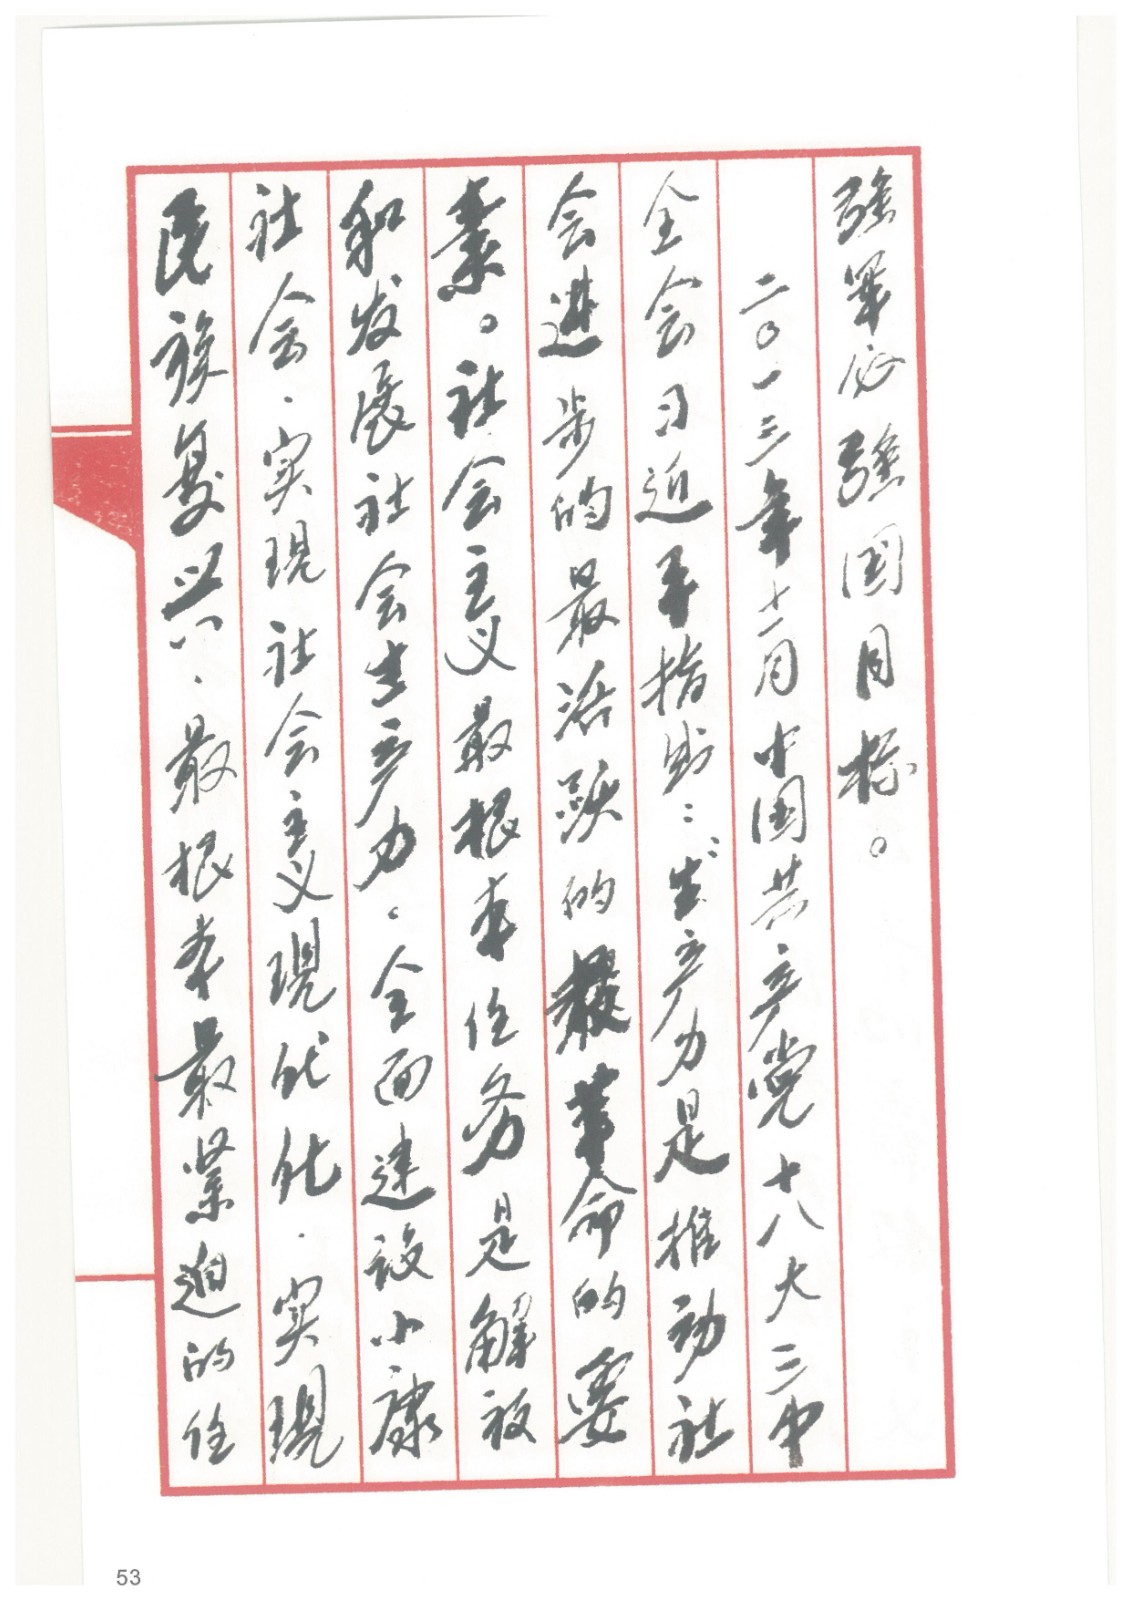 强军必强国目标。
二〇一三年十一月中国共产党十八大三中
全会习近平指出：“生产力是推动社
会进步的最活跃的最革命的要
素。社会主义最根本任务是解放
和发展社会生产力。全面建设小康
社会、实现社会主义现代化、实现
民族复兴、最根本最紧迫的任
53